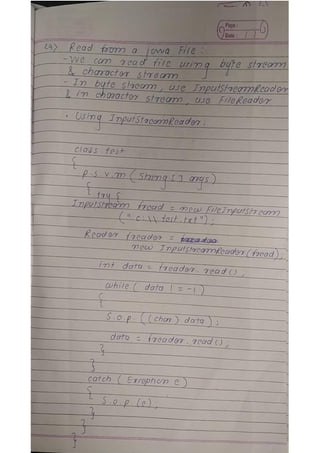 Page :
Date : / /
Read from a java File :
- We can read file using byte stream
& character stream.
- In byte stream, use InputStreamReader
& in character stream, use FileReader
• Using InputStreamReader.
class test
{
p.s.v.m (String [] args)
{ try {
InputStream fread = new FileInputStream
("c:\\ test.txt");
Reader freader =
new InputStreamReader (fread);
int data = freader.read();
while ( data != -1 )
{
S.o.p. ((char) data);
data = freader.read();
}
}
catch ( Exception e )
{
S.o.p (e);
}
}
}